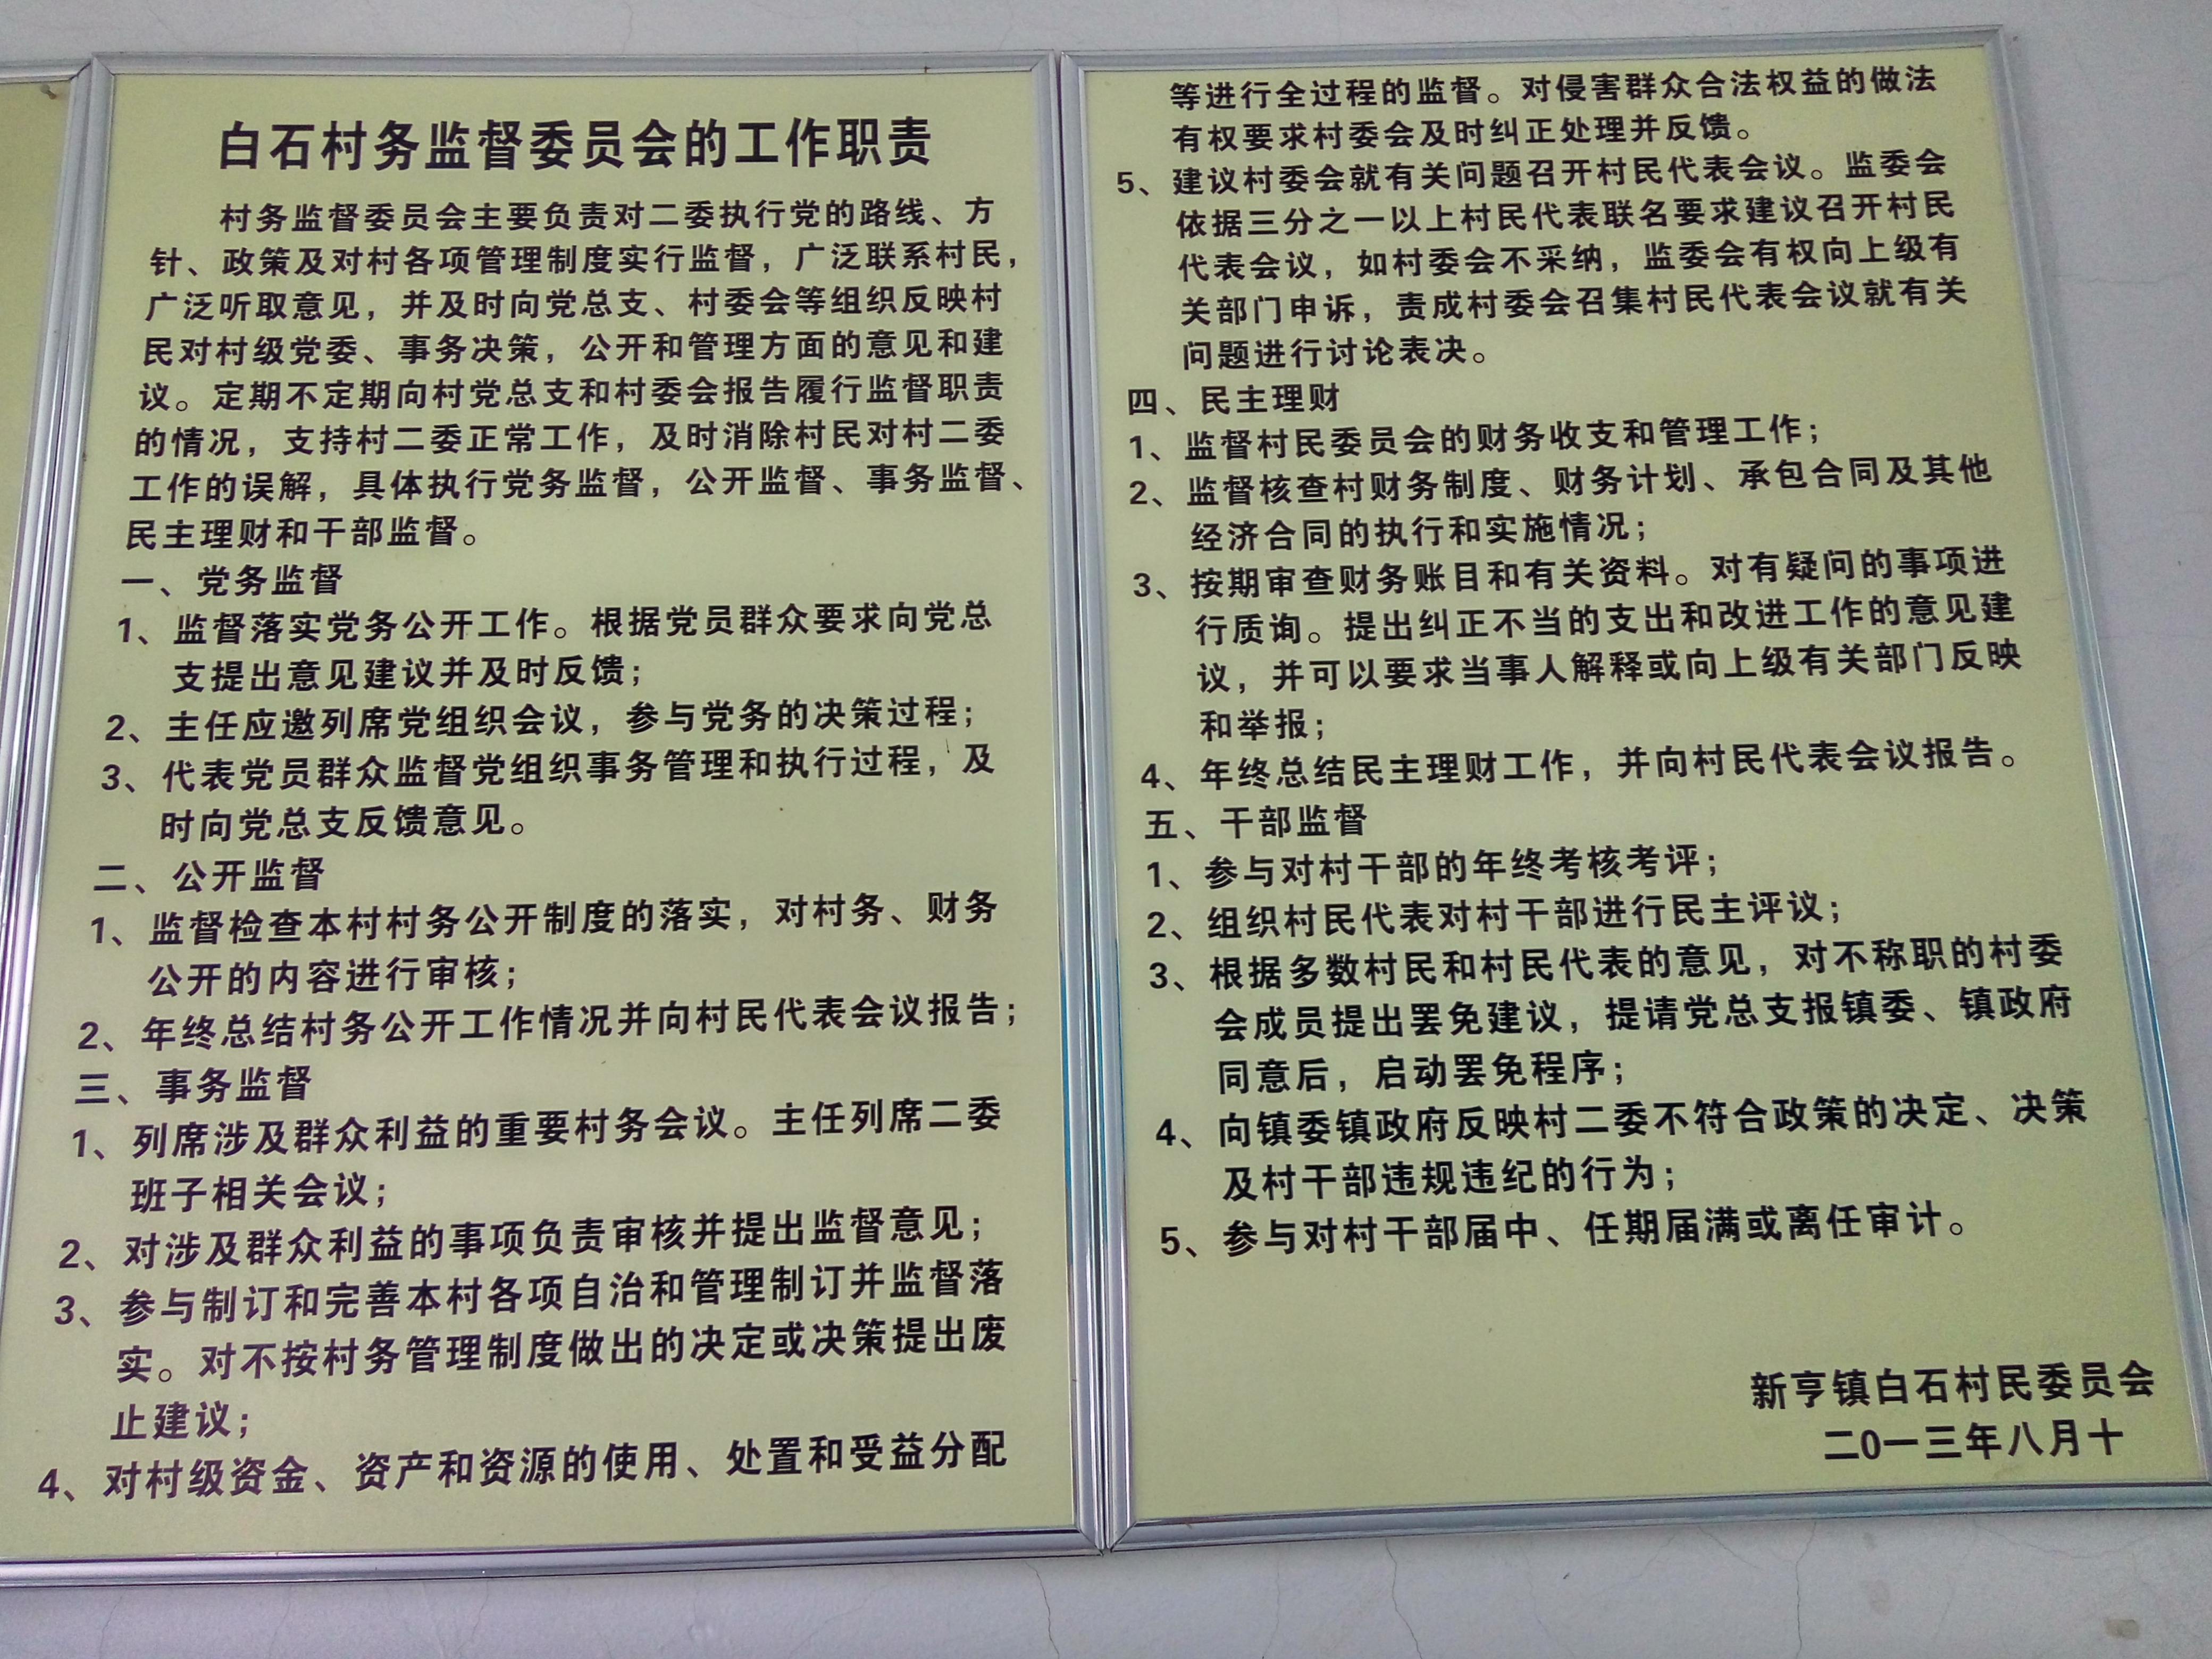 白石村务监督委员会的工作职责
村务监督委员会主要负责对二委执行党的路线、方
针、政策及对村各项管理制度实行监督，广泛联系村民，
广泛听取意见，并及时向党总支、村委会等组织反映村
民对村级党委、事务决策，公开和管理方面的意见和建
议。定期不定期向村党总支和村委会报告履行监督职责
的情况，支持村二委正常工作，及时消除村民对村二委
工作的误解，具体执行党务监督，公开监督、事务监督、
民主理财和干部监督。
一、党务监督
1、监督落实党务公开工作。根据党员群众要求向党总
支提出意见建议并及时反馈；
2、主任应邀列席党组织会议，参与党务的决策过程；
3、代表党员群众监督党组织事务管理和执行过程，及
时向党总支反馈意见。
二、公开监督
1、监督检查本村村务公开制度的落实，对村务、财务
公开的内容进行审核；
2、年终总结村务公开工作情况并向村民代表会议报告；
三、事务监督
1、列席涉及群众利益的重要村务会议。主任列席二委
班子相关会议；
2、对涉及群众利益的事项负责审核并提出监督意见；
3、参与制订和完善本村各项自治和管理制订并监督落
实。对不按村务管理制度做出的决定或决策提出废
止建议；
4、对村级资金、资产和资源的使用、处置和受益分配
等进行全过程的监督。对侵害群众合法权益的做法
有权要求村委会及时纠正处理并反馈。
5、建议村委会就有关问题召开村民代表会议。监委会
依据三分之一以上村民代表联名要求建议召开村民
代表会议，如村委会不采纳，监委会有权向上级有
关部门申诉，责成村委会召集村民代表会议就有关
问题进行讨论表决。
四、民主理财
1、监督村民委员会的财务收支和管理工作；
2、监督核查村财务制度、财务计划、承包合同及其他
经济合同的执行和实施情况；
3、按期审查财务账目和有关资料。对有疑问的事项进
行质询。提出纠正不当的支出和改进工作的意见建
议，并可以要求当事人解释或向上级有关部门反映
和举报；
4、年终总结民主理财工作，并向村民代表会议报告。
五、干部监督
1、参与对村干部的年终考核考评；
2、组织村民代表对村干部进行民主评议；
3、根据多数村民和村民代表的意见，对不称职的村委
会成员提出罢免建议，提请党总支报镇委、镇政府
同意后，启动罢免程序；
4、向镇委镇政府反映村二委不符合政策的决定、决策
及村干部违规违纪的行为；
5、参与对村干部届中、任期届满或离任审计。
新亨镇白石村民委员会
二0一三年八月十